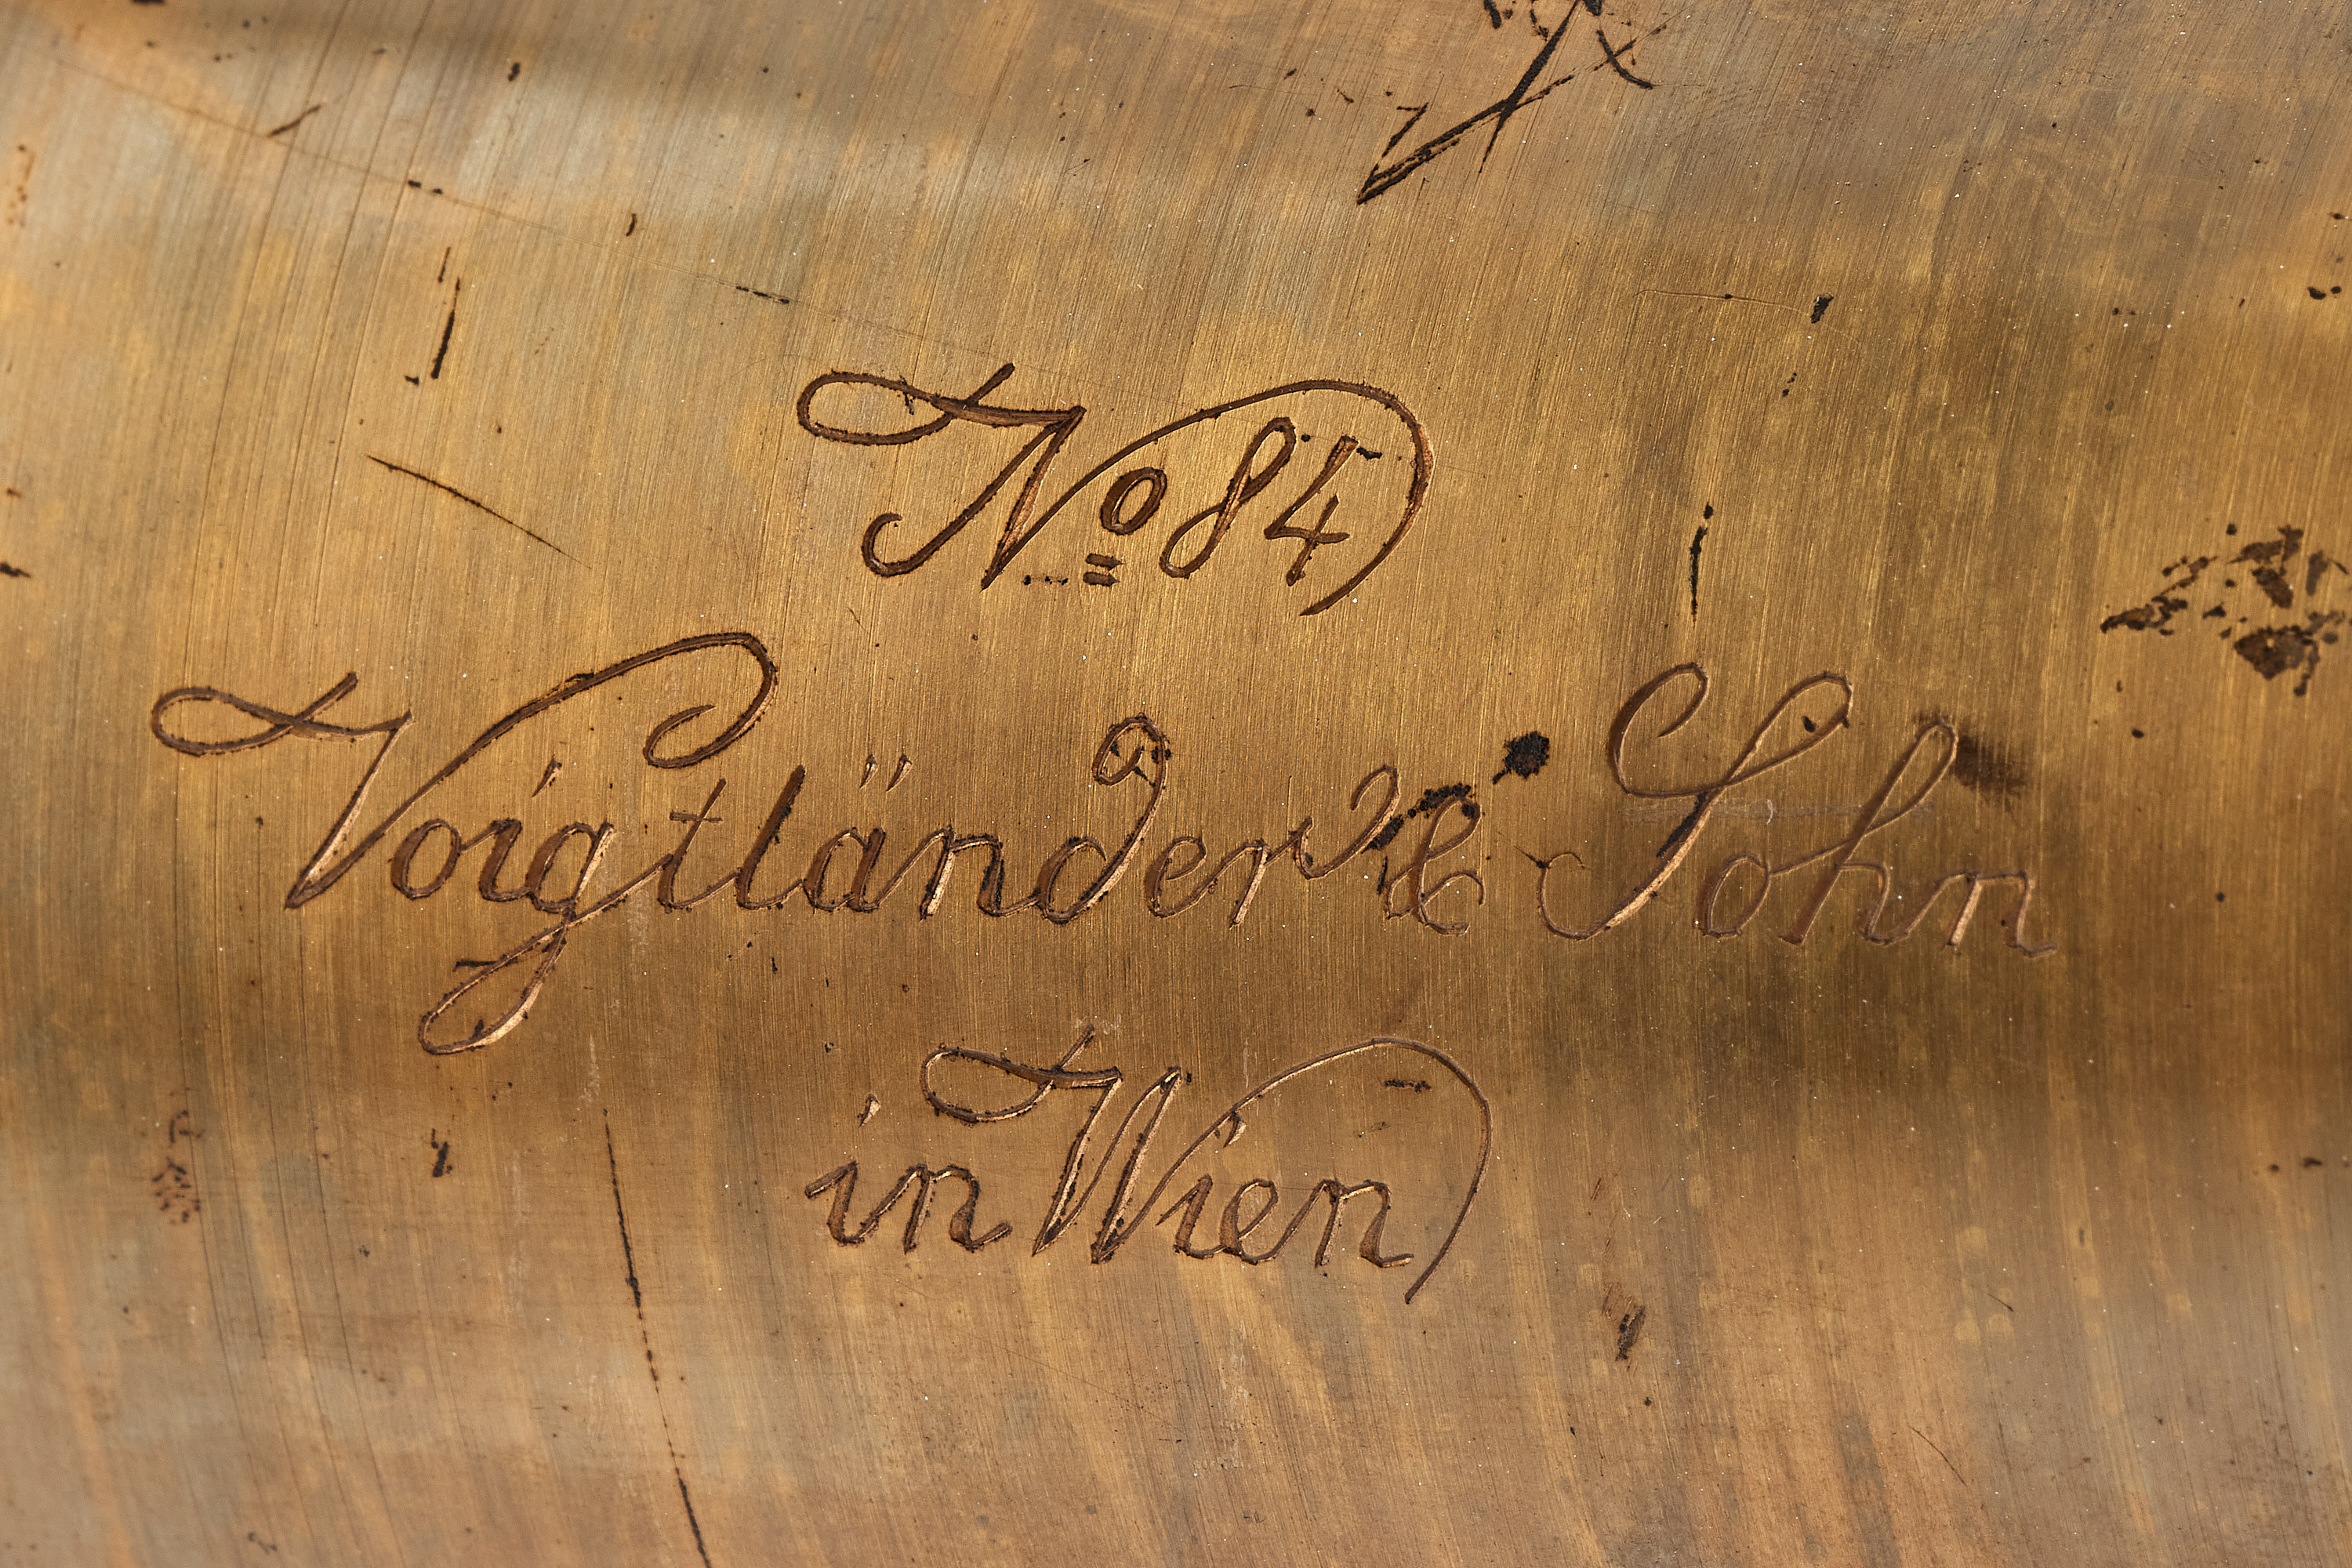 Nº 84
Voigtländer & Sohn
in Wien